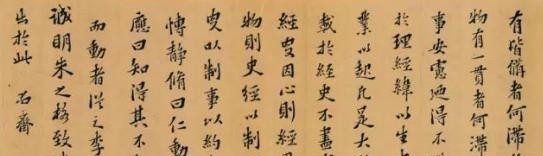 有階循者何滯於
物有一貫者何滯
事安處迪得不
於理經緯以生
業以起凡是大
載於經史不盡
經史因心則經
物則史經以制
史以制事以約
博靜脩曰仁動
應曰知得其不
而動者從之李
誠明朱之格致
出於此 石齋